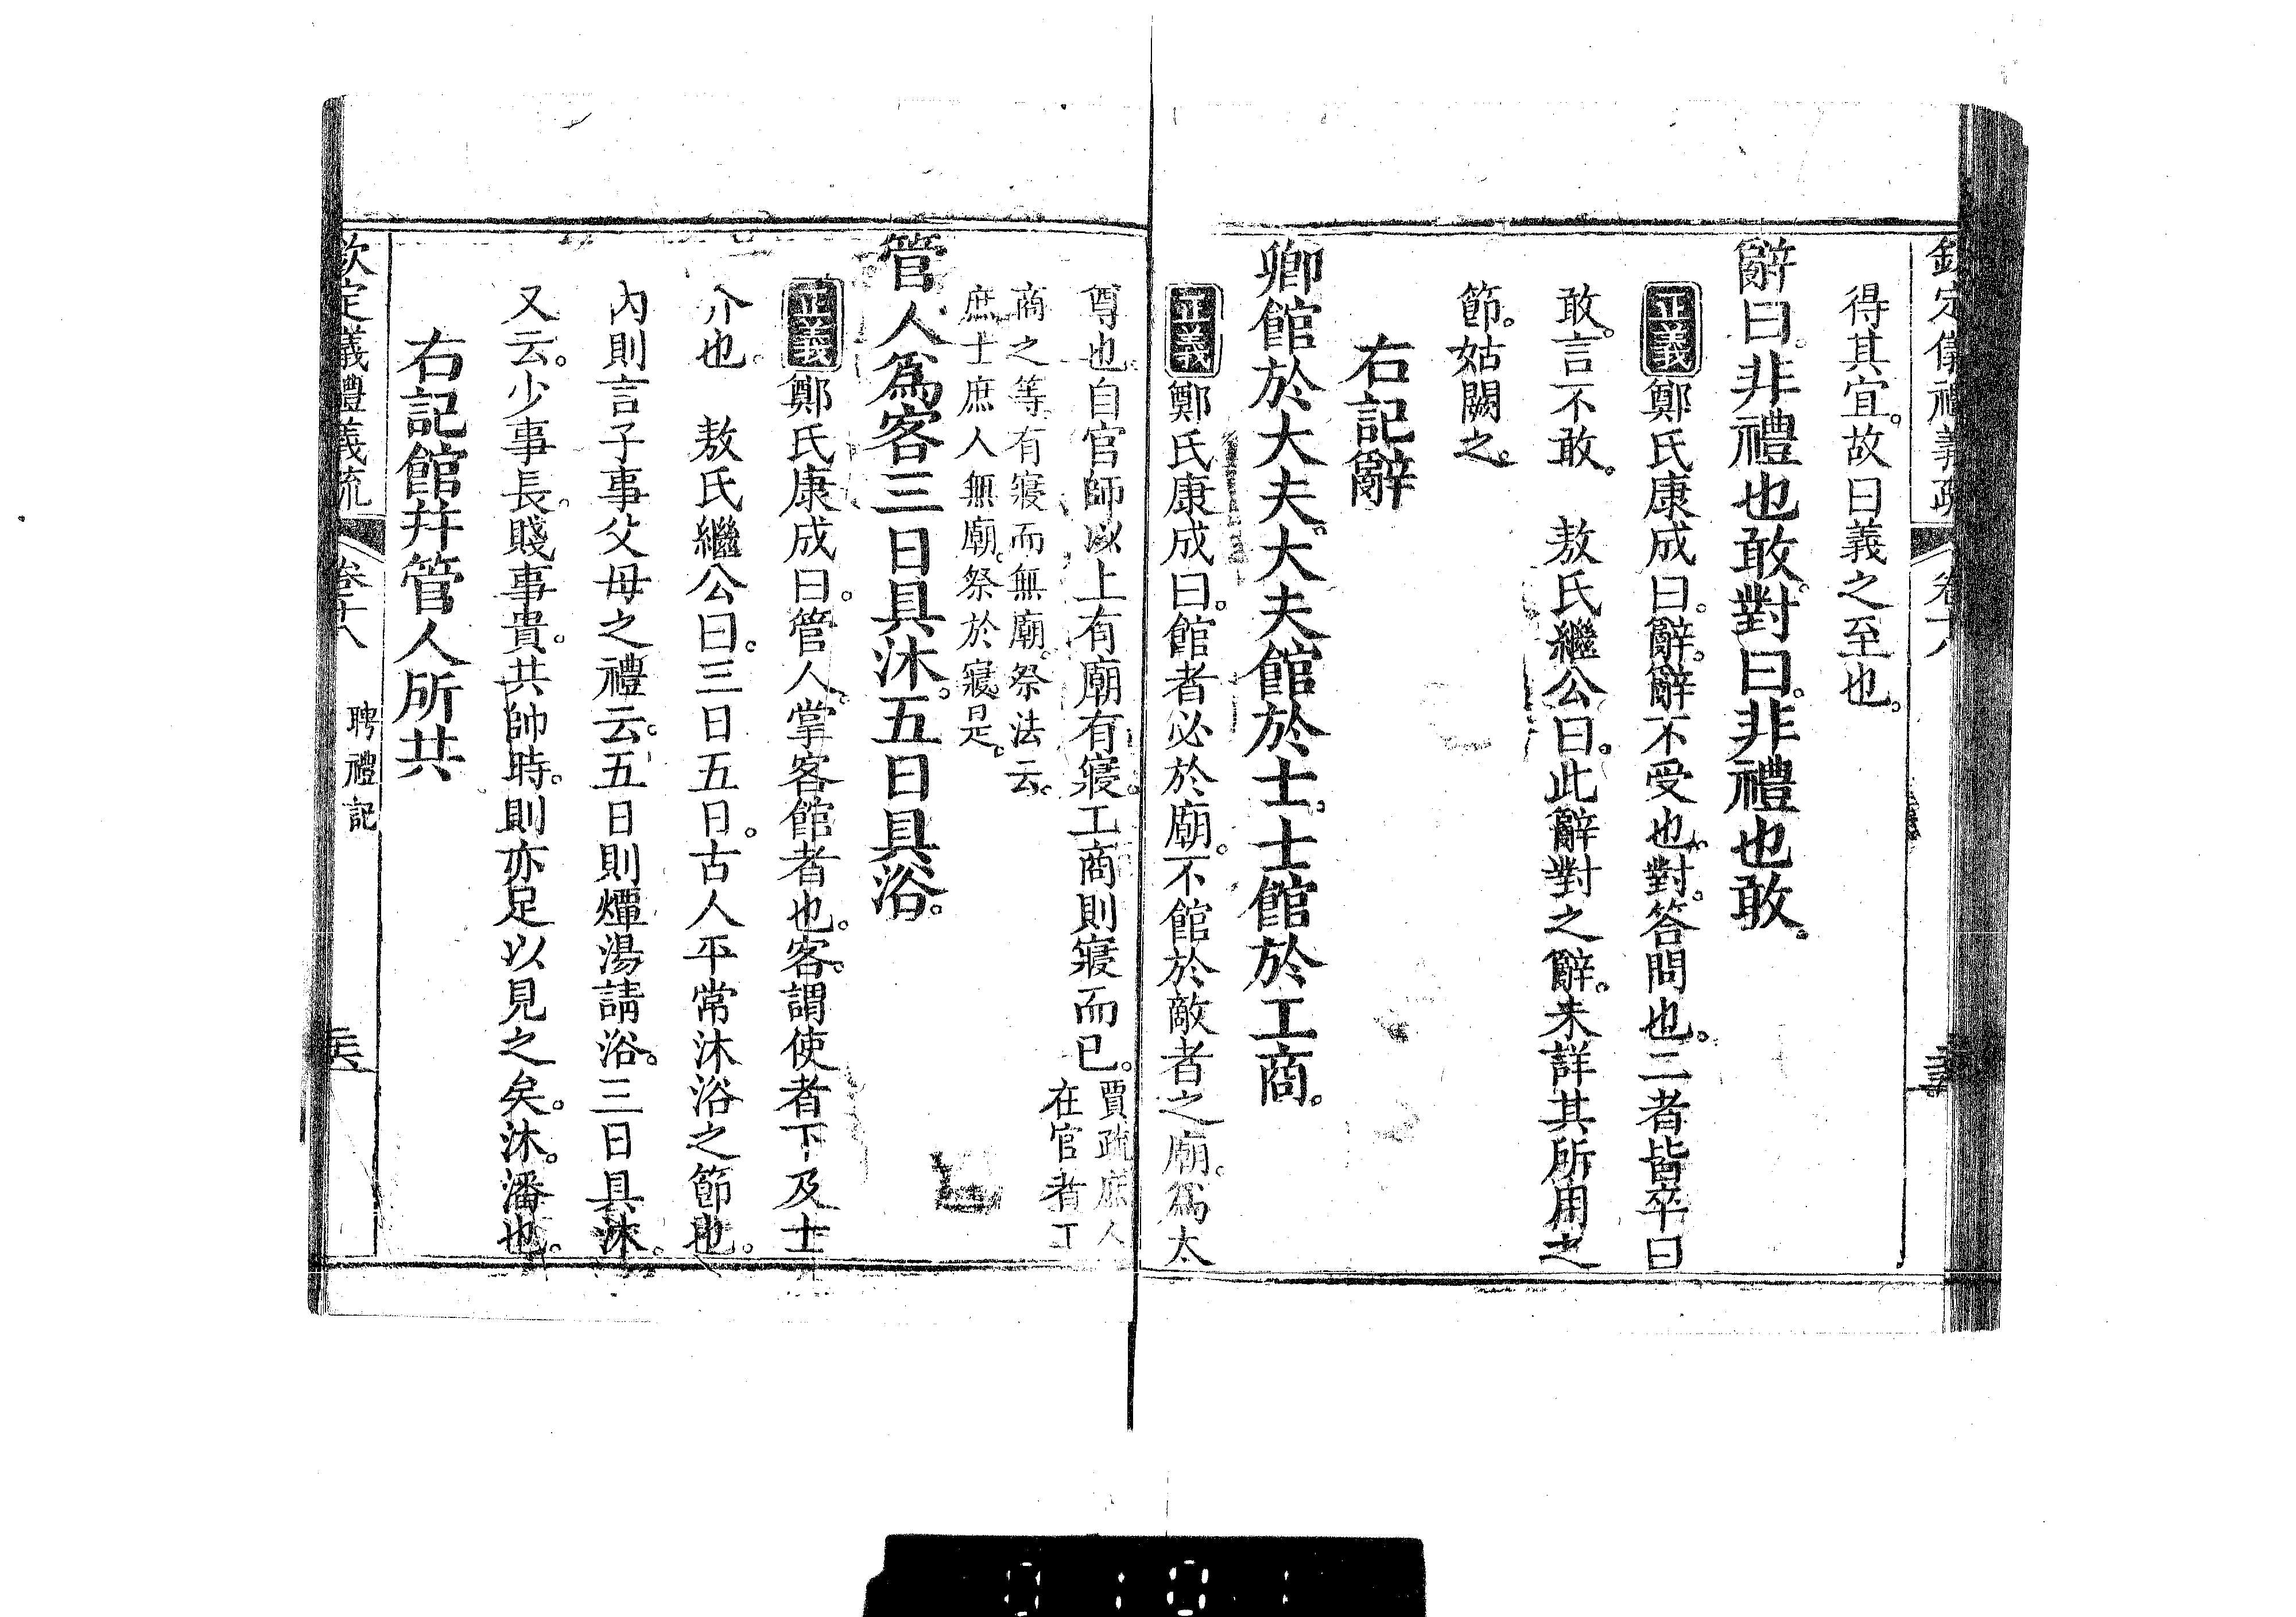 欽定儀禮義疏 卷十八
得其宜。故曰義之至也。
辭曰。非禮也敢。對曰。非禮也敢。
正義 鄭氏康成曰。辭。辭不受也。對。答問也。二者皆卒曰
敢。言不敢。 敖氏繼公曰。此辭對之辭。未詳其所用之
節。姑闕之。
右記辭
卿館於大夫。大夫館於士。士館於工商。
正義 鄭氏康成曰。館者必於廟。不館於敵者之廟。爲太
尊也。自官師以上有廟有寢。工商則寢而已。賈疏庶人
在官者工
商之等。有寢而無廟。祭法云。
庶士庶人無廟。祭於寢。是。
管人爲客三日具沐。五日具浴。
正義 鄭氏康成曰。管人。掌客館者也。客。謂使者下及士
介也。 敖氏繼公曰。三日五日。古人平常沐浴之節也。
內則言子事父母之禮云。五日則燂湯請浴。三日具沐。
又云。少事長。賤事貴。共帥時。則亦足以見之矣。沐。潘也。
右記館幷管人所共
欽定儀禮義疏 卷十八 聘禮記